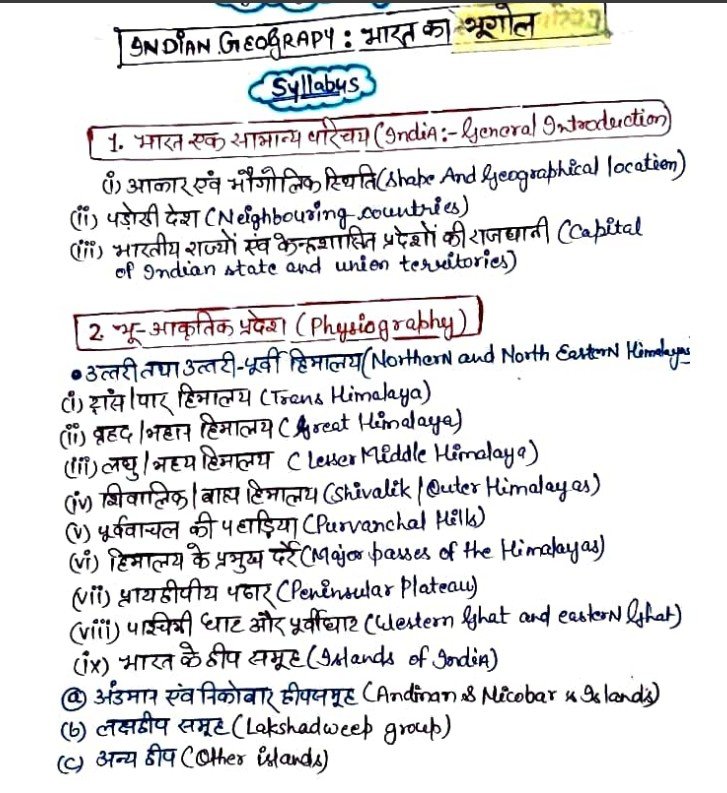 INDIAN GEOGRAPY : भारत का भूगोल
Syllabus
1. भारत एक सामान्य परिचय (India:- General Introduction)
(i) आकार एवं भौगोलिक स्थिति (Shape And Geographical location)
(ii) पड़ोसी देश (Neighbouring countries)
(iii) भारतीय राज्यों एंव केन्द्रशासित प्रदेशों की राजधानी (Capital
of Indian state and union territories)
2. भू-आकृतिक प्रदेश (Physiography)
• उत्तरी तथा उत्तरी-पूर्वी हिमालय (Northern and North Eastern Himalayas
(i) ट्रांस/पार हिमालय (Trans Himalaya)
(ii) ब्रहद/महान हिमालय (Great Himalaya)
(iii) लघु/मध्य हिमालय (Lesser Middle Himalaya)
(iv) शिवालिक/बाह्य हिमालय (Shivalik/Outer Himalayas)
(v) पूर्ववाचल की पहाड़िया (Purvanchal Hills)
(vi) हिमालय के प्रमुख दर्रे (Major passes of the Himalayas)
(vii) प्रायद्वीपीय पठार (Peninsular Plateau)
(viii) पश्चिमी घाट और पूर्वी घाट (Western Ghat and eastern Ghat)
(ix) भारत के द्वीप समूह (Islands of India)
(a) अंडमान एंव निकोबार द्वीपसमूह (Andinan & Nicobar Islands)
(b) लक्षद्वीप समूह (Lakshadweep group)
(c) अन्य द्वीप (Other islands)